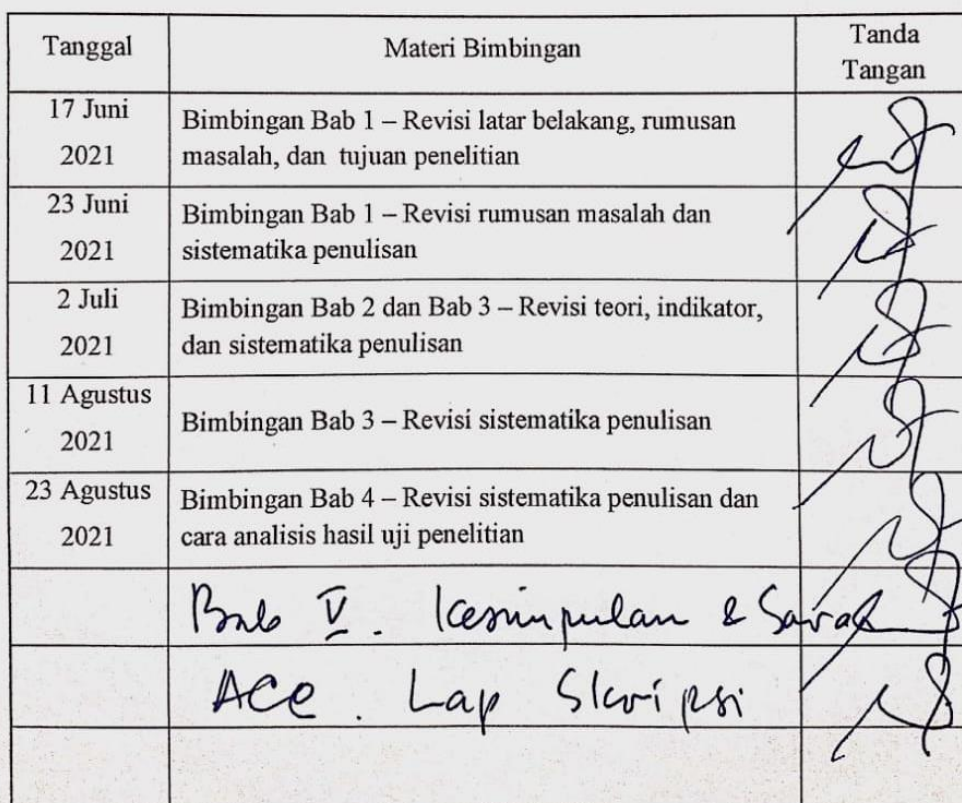 Tanggal Materi Bimbingan Tanda
Tangan
17 Juni
2021
Bimbingan Bab 1 – Revisi latar belakang, rumusan
masalah, dan tujuan penelitian
23 Juni
2021
Bimbingan Bab 1 – Revisi rumusan masalah dan
sistematika penulisan
2 Juli
2021
Bimbingan Bab 2 dan Bab 3 – Revisi teori, indikator,
dan sistematika penulisan
11 Agustus
2021
Bimbingan Bab 3 – Revisi sistematika penulisan
23 Agustus
2021
Bimbingan Bab 4 – Revisi sistematika penulisan dan
cara analisis hasil uji penelitian
Bab V. Kesimpulan & Saran
ACC. Lap Skripsi